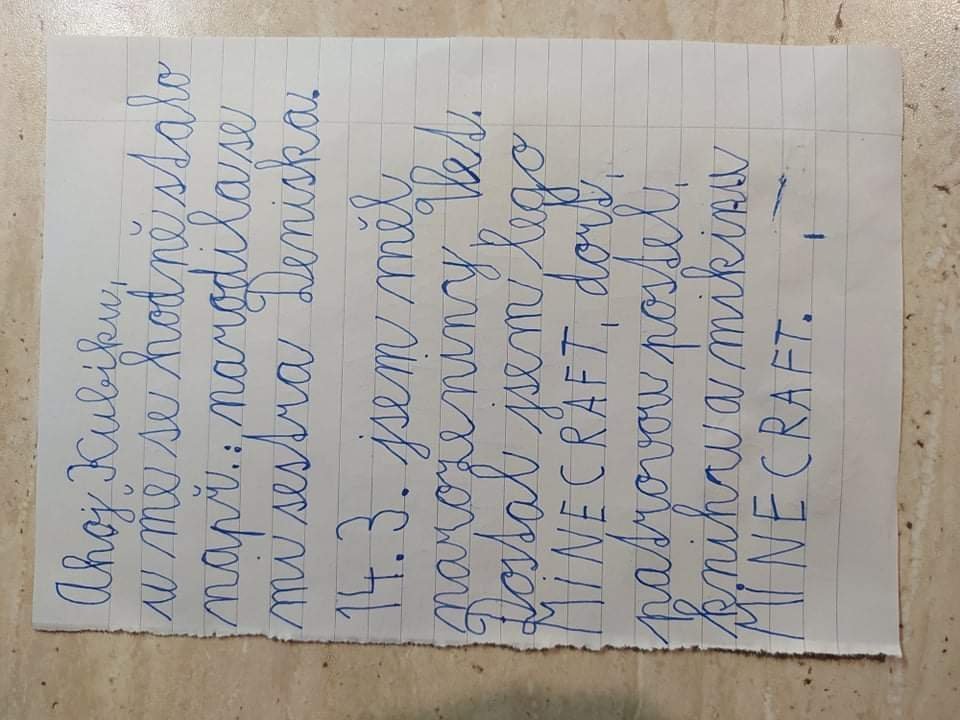 Ahoj Kubiku,
u mě se hodně stalo
např.: narodila se
mi sestra Deniska.
14.3. jsem měl
narozeniny
Dostal jsem lego
MINECRAFT, dort,
patrovou postel,
knihu a mikinu
MINECRAFT.